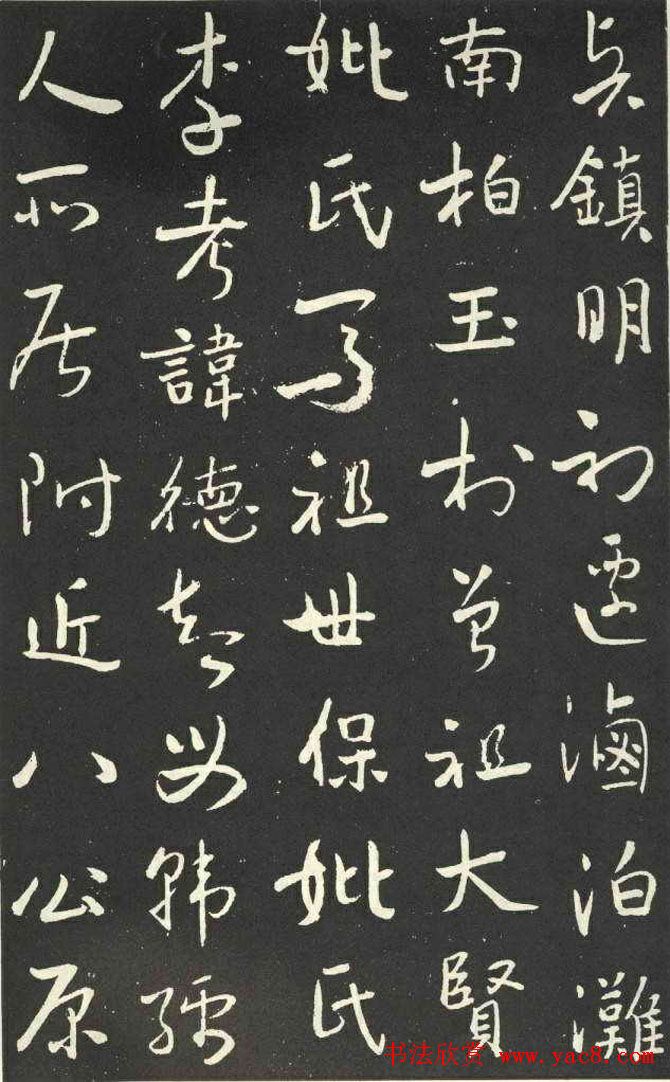 鎮明初遷滷泊灘
南柏玉村曾祖大賢
妣氏馬祖世保妣氏
李考諱德母韓孺
人所居附近八公原
书法欣赏 www.yac8.com